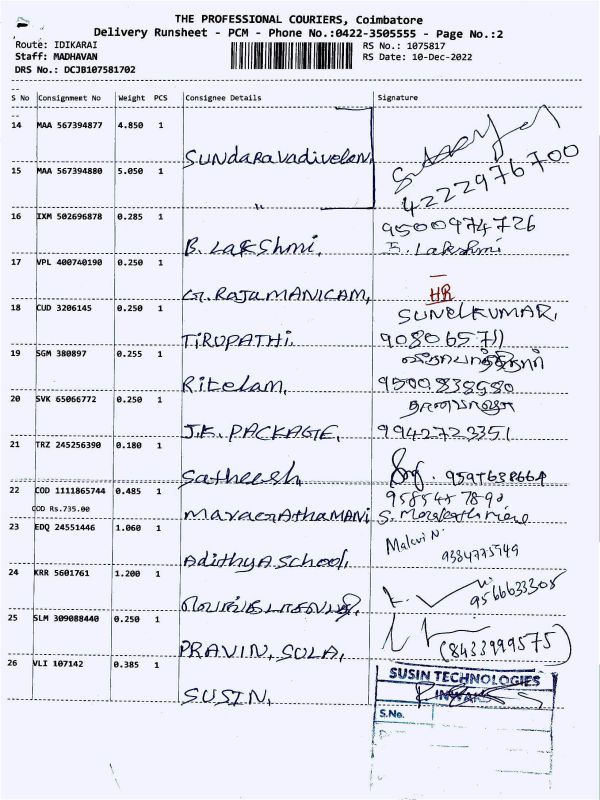 THE PROFESSIONAL COURIERS, Coimbatore
Delivery Runsheet - PCM - Phone No.:0422-3505555 - Page No.:2
Route: IDIKARAI RS No.: 1075817
Staff: MADHAVAN RS Date: 10-Dec-2022
DRS No.: DCJB107581702
S No Consignment No Weight PCS Consignee Details Signature
14 MAA 567394877 4.850 1
Sundaravadivelan,
15 MAA 567394880 5.050 1
4222976700
"
16 IXM 502696878 0.285 1 9500974726
B. Lakshmi, B. Lakshmi
17 VPL 400740190 0.250 1
G. RAJAMANICAM, HR
18 CUD 3206145 0.250 1 SUNELKUMAR,
TIRUPATHI. 908065711
19 SGM 380897 0.255 1
Ritelam, 9500838580
20 SVK 65066772 0.250 1
J.K. PACKAGE, 9942723351
21 TRZ 245256390 0.180 1
Satheesh
22 COD 1111865744 0.485 1
COD Rs.735.00
23 EDQ 24551446 1.060 1 Malevi N.
Adithya School, 9384775949
24 KRR 5601761 1.200 1
9566633305
25 SLM 309088440 0.250 1
PRAVIN, SULA, (8433999575)
26 VLI 107142 0.385 1
SUSIN, SUSIN TECHNOLOGIES
INWARD
S.No.